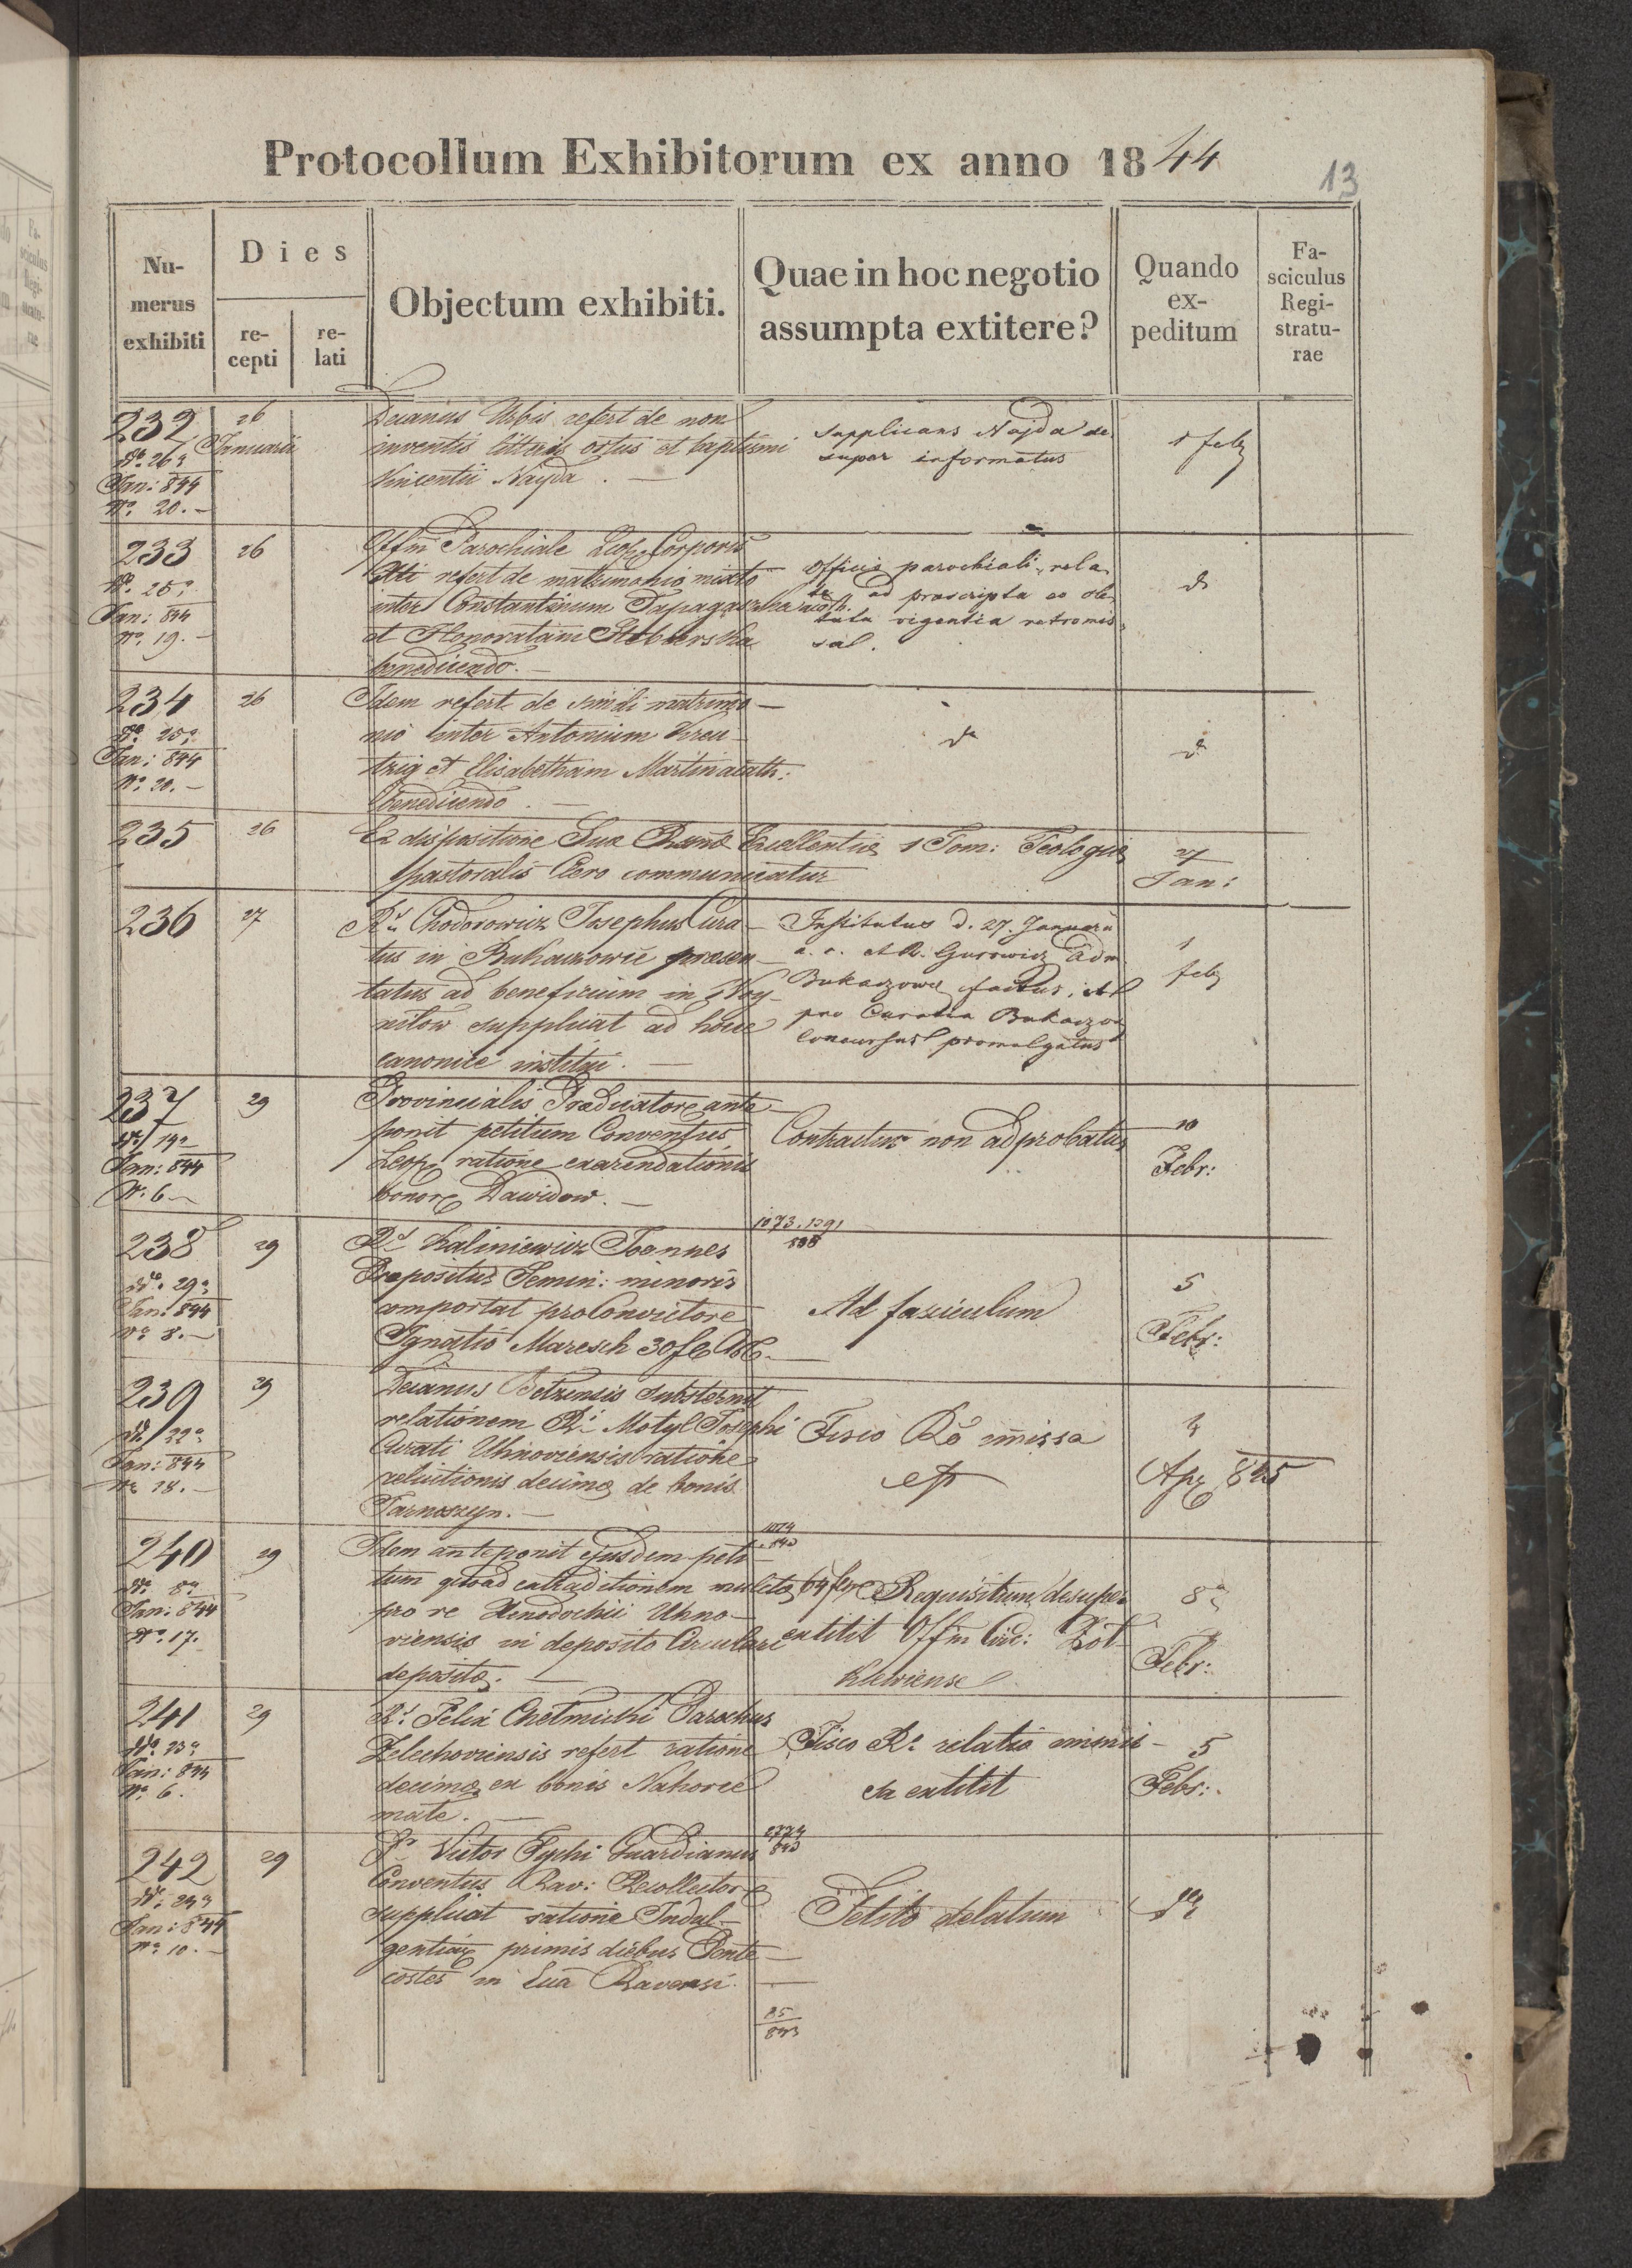 Protocollum Exhibitorum ex anno 1844
13
Nu-
merus
exhibiti
Dies
re-
cepti
re-
lati
Objectum exhibiti.
Quae in hoc negotio
assumpta extitere?
Quando
ex-
peditum
Fa-
sciculus
Regi-
stratu-
rae
232
26
Januarii
Jan: 844
Nº 20.-
Decanus Urbis refert de non
inventis litteris ortus et baptismi
Vincentii Nayda. -
Supplicans Najda de
super informatus
1 feb
233
26
Jan: 844
Nº 19.-
Offm Parochiale Leop. Corporis
refert de matrimonio mixto
inter Constantinum
et Honoratam
benedicendo. -
Officio parochiali rela
ad praescripta
vigentia retromis
sal.
234
26
Jan: 844
Nº 20.-
Idem refert de simili matrimo-
nio inter Antonium
et Elisabetham
benedicendo. -
235
26
Ex dispositione Suae Excellentiae 1 Tom: Teologiae
pastoralis Clero communicatur
27
Jan:
236
27
Chodorowicz Josephus Cura-
tus in Bukaczowce praesen-
tatus ad beneficium in Woy-
nilow supplicat ad hocce
canonice institui. -
Institutus d. 27. Januarii
a. c. et R. Gurowicz Adm
Bukaczowce factus, et
pro Curatia Bukaczow
Concursus promulgatus
1
feb
237
29
Jan: 844
Nº 6-
Provincialis Praedicatore ante
ponit petitum Conventus
Leop. ratione exarendationis
bonor Dawidow. -
Contractus non adprobatus
10
Febr:
238
29
Jan: 844
Nº 8.-
Kaliniewicz Joannes
Praepositus Semin: minoris
comportat pro Convictore
Ignatio Maresch 30 f
1073.1291
Ad fasciculum
5
Febr:
239
29
Jan: 844
Nº 18.-
Decanus Belzensis substernit
relationem Motyl Josephi
Curati Uhnoviensis ratione
reluitionis decimae de bonis
Tarnoszyn. -
Fisco Rº missa
est
Apr 845
240
29
Jan: 844
Nº 17.
Idem anteponit ejusdem peti-
tum quoad extraditionem
pro re Xenodochii Uhno-
viensis in deposito Circulari
depositae. -
Requisitum desuper
extitit Offm Circ: Zol-
kiewiense
8
Febr:
241
29
Jan: 844
Nº 6.
Felix Chelmicki Parochus
Zelechoviensis refert ratione
decimae ex bonis Nahorce
małe. -
Fisco Rº relatio immis-
sa extitit
5
Febr:
242
29
Jan: 844
Nº 10.-
Victor Guardianus
Conventus Rav: Recollector
supplicat ratione Indul-
gentiar primis diebus Pente-
costes in sua Ravensi. -
Petito delatum